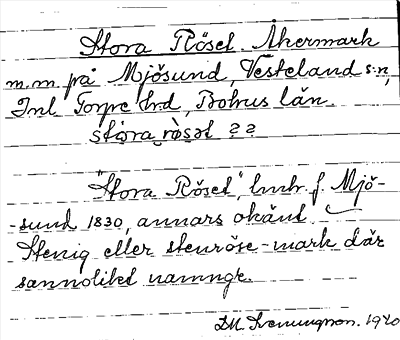 Stora Röset. Åkermark
m.m. på Mjösund, Vesteland s:n,
Inl. Torpe hrd, Bohus län.
stora röset ??
"Stora Röset", lmhr. f. Mjö-
-sund 1830, annars okänt.
Stenig eller stenröse-mark där
sannolikt namngr.
1920